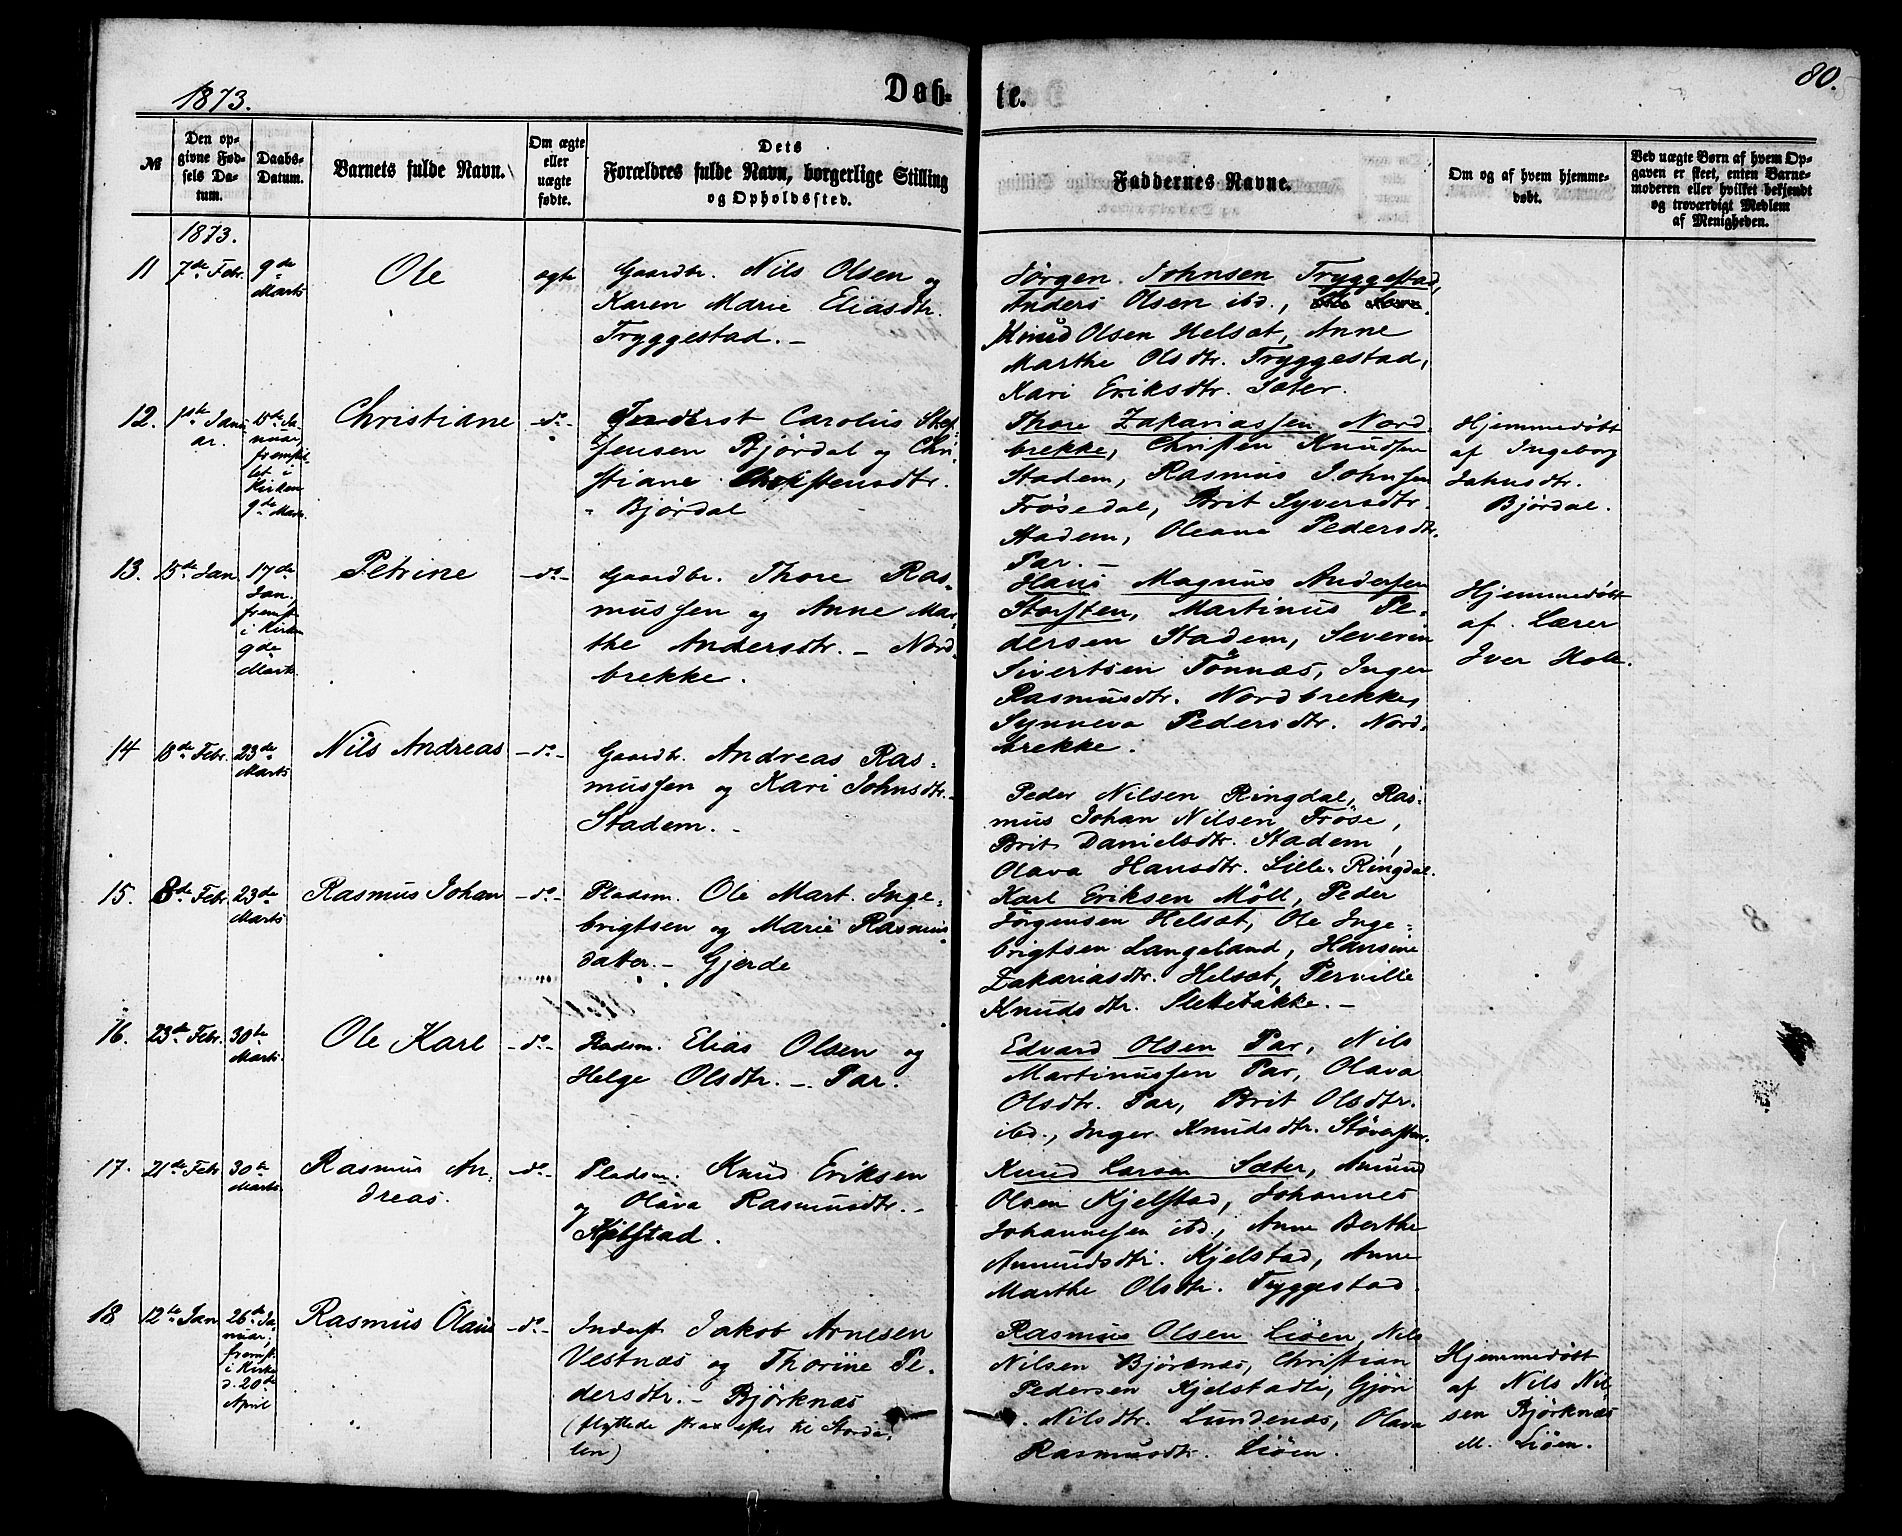 1873.
Døb-
te.
80.
№
Den op-
givne Fød-
sels Da-
tum.
Daabs-
Datum.
Barnets fulde Navn.
Om ægte
eller
uægte
fødte.
Dets
Forældres fulde Navn, borgerlige Stilling
og Opholdssted.
Faddernes Navne.
Om og af hvem hjemme-
døbt.
Ved uægte Børn af hvem Op-
gaven er skeet, enten Barne-
moderen eller hvilket bekjendt
og troværdigt Medlem
af Menigheden.
1873.
11
7de Febr.
9de
Marts
Ole
ægte
Gaardbr. Nils Olsen og
Karen Marie Eliasdtr.
Tryggestad. -
Jørgen Johnsen Tryggestad,
Anders Olsen ibd.,
Knud Olsen Helsæt, Anne
Marthe Olsdtr. Tryggestad,
Kari Eriksdtr. Sæter.
12.
1ste Janu-
ar.
15de Ja-
nuar,
fremstil-
let i
Kirken
9de Marts
Christiane
- do -
Inderst Carolus Stef-
fensen Bjørdal og Chri-
stiane Christensdtr.
- Bjørdal
Thore Zakariassen Nord-
brekke, Christen Knudsen
Stadem, Rasmus Johnsen
Frøsedal, Brit Syversdtr.
Stadem, Oleane Pedersdtr.
Par. -
Hjemmedøbt
af Ingeborg
Johnsdtr.
Bjørdal.
13.
15de Jan.
17de
Jan.,
fremst.
i Kirken
9de
Marts.
Petrine
- do -
Gaardbr. Thore Ras-
mussen og Anne Mar-
the Andersdtr. - Nord-
brekke.
Hans Magnus Andersen
Storsten, Martinus Pe-
dersen Stadem, Severin
Sivertsen Tønnæs, Inger
Rasmusdtr. Nordbrekke,
Synneva Pedersdtr. Nord-
brekke.
Hjemmedøbt
af Lærer
Iver Holt.
14
13de Febr.
23de
Marts
Nils Andreas
- do -
Gaardbr. Andreas Ras-
mussen og Kari Johnsdtr. -
Stadem. -
Peder Nilsen Ringdal, Ras-
mus Johan Nilsen Frøse,
Brit Danielsdtr. Stadem,
Olava Hansdtr. Lille-Ringdal.
15.
8de Febr.
23de
Marts
Rasmus Johan
- do -
Pladsm. Ole Mart. Inge-
brigtsen og Marie Rasmus-
datter. - Gjerde
Karl Eriksen Möll, Peder
Jørgensen Helsæt, Ole Inge-
brigtsen Langeland, Hansine
Zakariasdtr. Helsæt, Pernille
Knudsdtr. Slettebakke. -
16.
23de Febr.
30te
Marts.
Ole Karl
- do -
Pladsm. Elias Olsen og
Helge Olsdtr. - Par.
Edvard Olsen Par, Nils
Martinussen Par, Olava
Olsdtr. Par, Brit Olsdtr.
ibd., Inger Knudsdtr.
17.
21de Febr.
30te
Marts.
Rasmus An-
dreas.
- do -
Pladsm. Knud Eriksen
og Olava Rasmusdtr. -
Kjelstad.
Knud Larsen Sæter, Amund
Olsen Kjelstad, Johannes
Johannesen ibd., Anne Berthe
Amundsdtr. Kjelstad, Anne
Marthe Olsdtr. Tryggestad.
18
12te Jan
26de Ja-
nuar,
fremst.
i Kirke
d. 20de
April
Rasmus Olaus
- do -
Inderst Jakob Arnesen
Vestnæs og Thorine Pe-
dersdtr. - Bjørknæs
(flyttede strax efter til Storda-
len)
Rasmus Olsen Liøen, Nils
Nilsen Bjørknæs, Christian
Pedersen Kjelstadli, Gjøri
Nilsdtr. Lundenæs, Olava
Rasmusdtr. Liøen.
Hjemmedøbt
af Nils Nil-
sen Bjørknæs
M. Liøen.